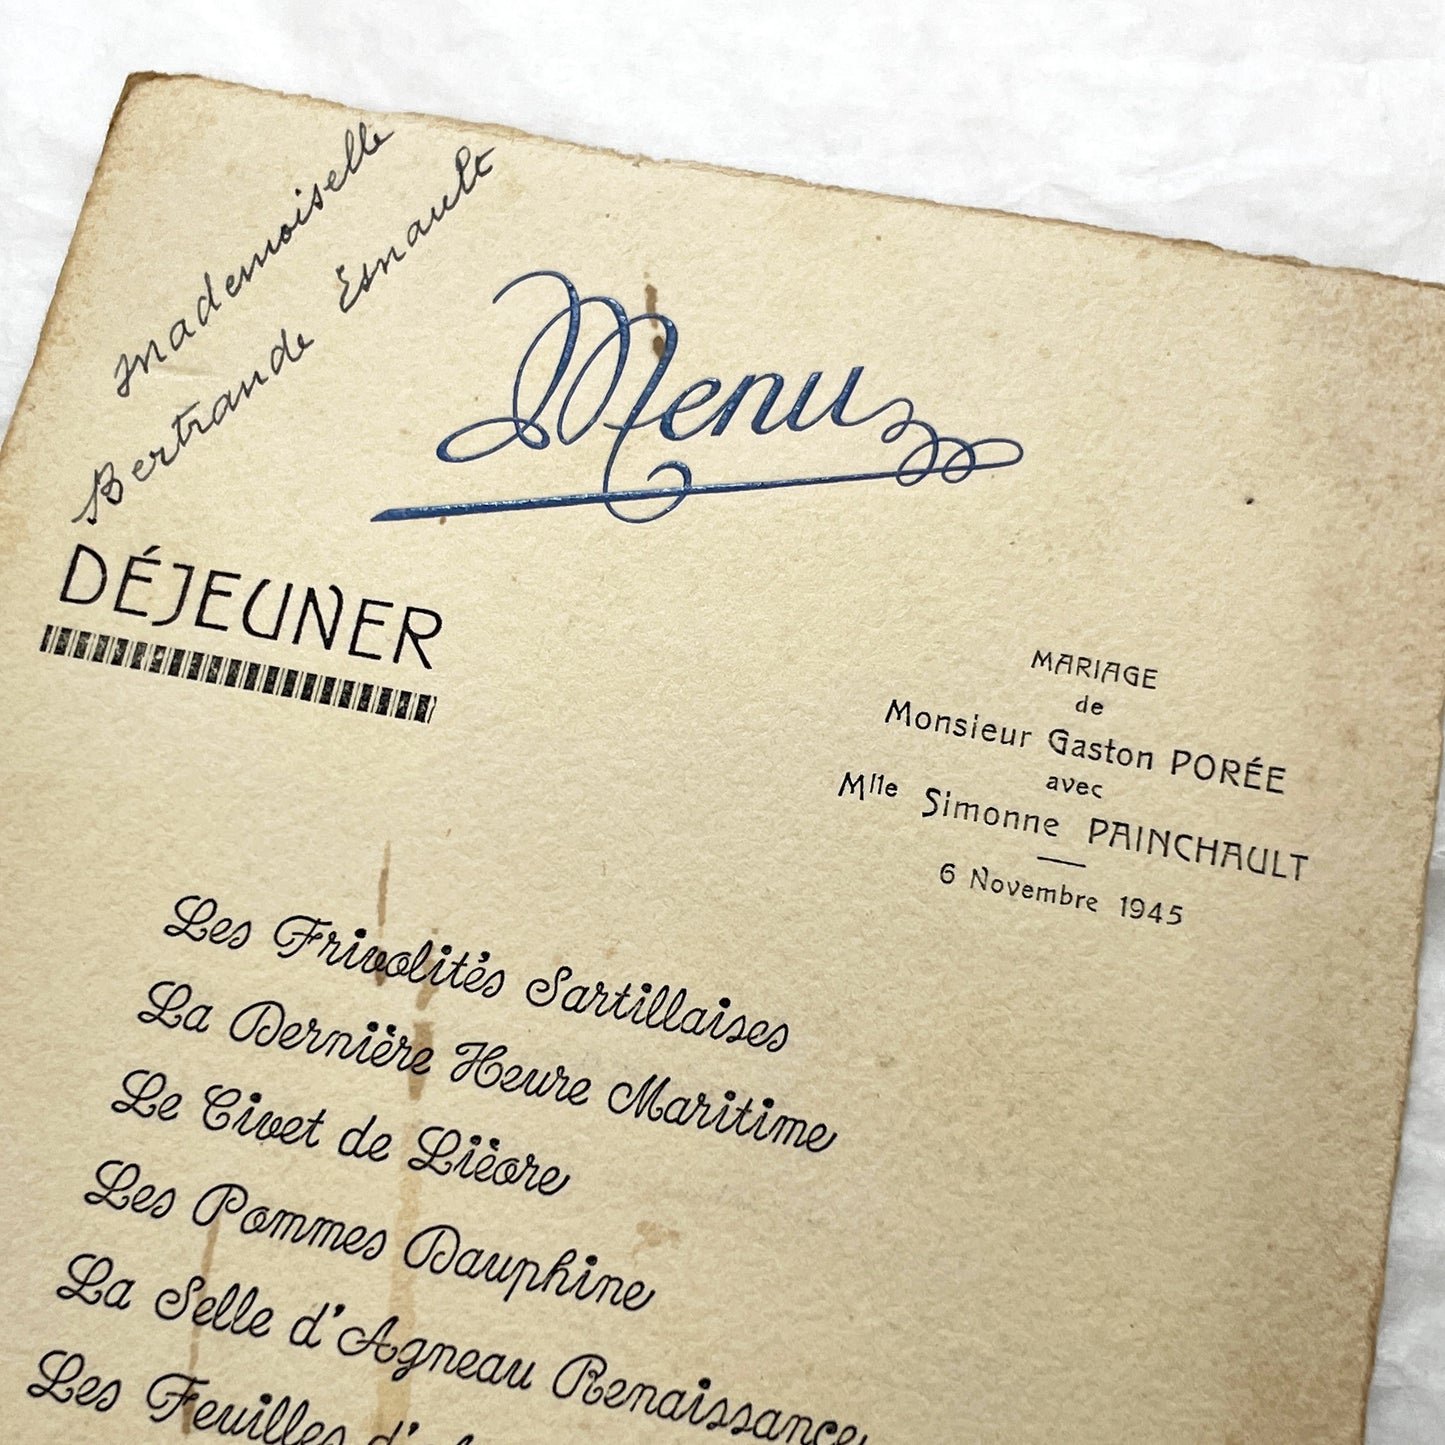 Mademoiselle
Bertrande Esnault
Menu
DÉJEUNER
MARIAGE
de
Monsieur Gaston PORÉE
avec
Mlle Simonne PAINCHAULT
6 Novembre 1945
Les Frivolités Sartillaises
La Dernière Heure Maritime
Le Civet de Lièvre
Les Pommes Dauphine
La Selle d'Agneau Renaissance
Les Feuilles d'